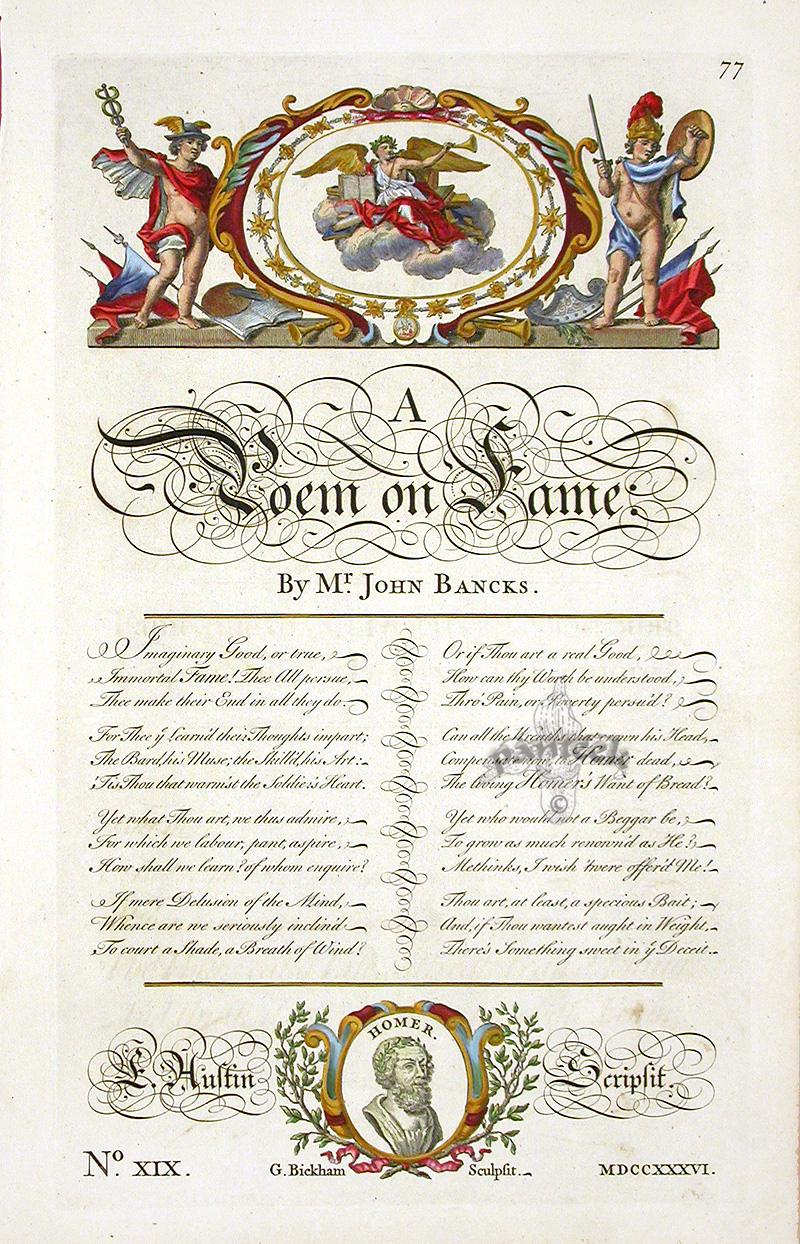 77
A
Poem on Fame:
By Mr. JOHN BANCKS.
Imaginary Good, or true,
Immortal Fame! Thee All pursue,
Thee make their End in all they do.
For Thee yͤ Learn'd their Thoughts impart;
The Bard, his Muse; the Skill'd, his Art:
'Tis Thou that warm'st the Soldier's Heart.
Yet what Thou art, we thus admire,
For which we labour, pant, aspire,
How shall we learn? of whom enquire?
If mere Delusion of the Mind,
Whence are we seriously inclin'd
To court a Shade, a Breath of Wind?
Or if Thou art a real Good,
How can thy Worth be understood,
Thro' Pain, or Poverty persu'd?
Can all the Wreaths that crown his Head,
Compensate now, to Homer dead,
The living Homer's Want of Bread?
Yet who would not a Beggar be,
To grow as much renown'd as He?
Methinks, I wish 'twere offer'd Me!
Thou art, at least, a specious Bait;
And, if Thou wantest aught in Weight,
There's Something sweet in yͤ Deceit.
HOMER.
E. Austin Scripſit.
No. XIX. G. Bickham Sculpſit. MDCCXXXVI.